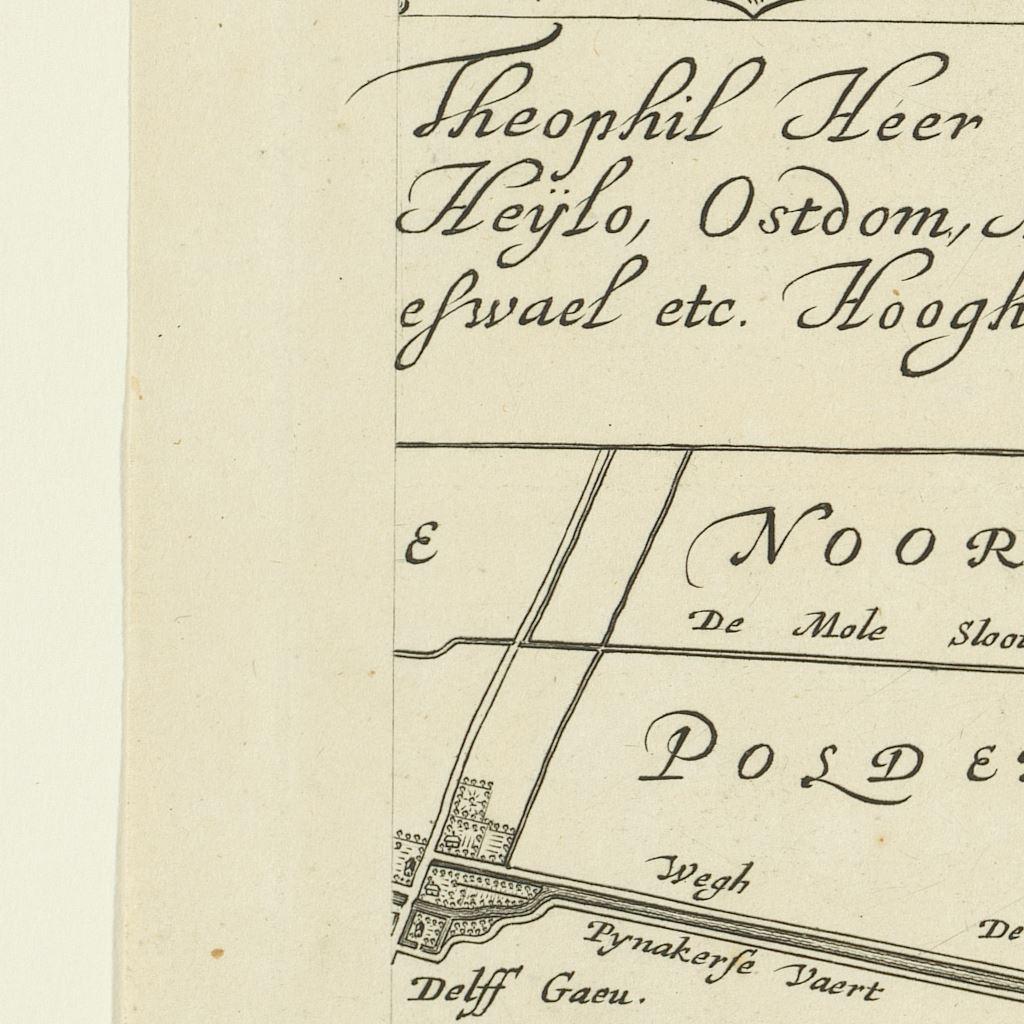 Theophil Heer
Heÿlo, Ostdom,
eſwael etc. Hoogh
E
NOOR
De Mole Sloot
POLDE
Wegh
De
Pynakerſe Vaert
Delff Gaeu.